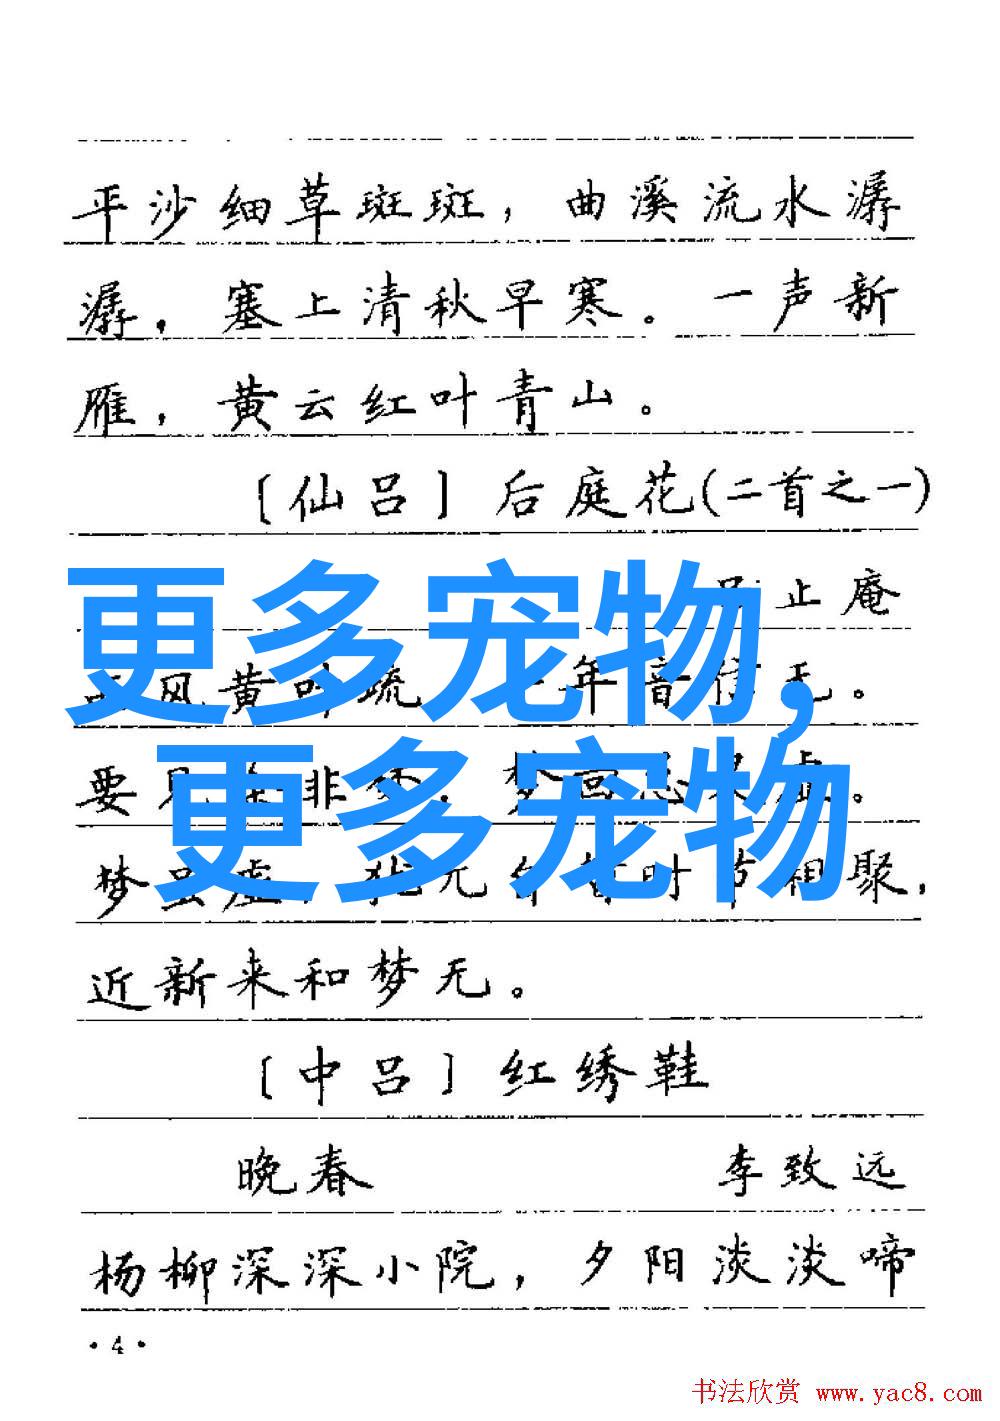 平沙细草斑斑，曲溪流水潺
潺，塞上清秋早寒。一声新
雁，黄云红叶青山。
〔仙吕〕后庭花(二首之一)
吕止庵
风黄叶疏 年音信无。
要见 非
梦 虚 时节相聚，
近新来和梦无。
〔中吕〕红绣鞋
晚春 李致远
杨柳深深小院，夕阳淡淡啼
·4·
更多宠物，
更多宠物
书法欣赏 www.yac8.com